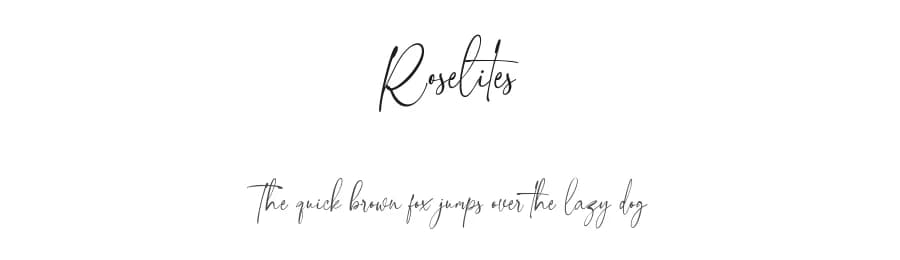 Roselites
The quick brown fox jumps over the lazy dog